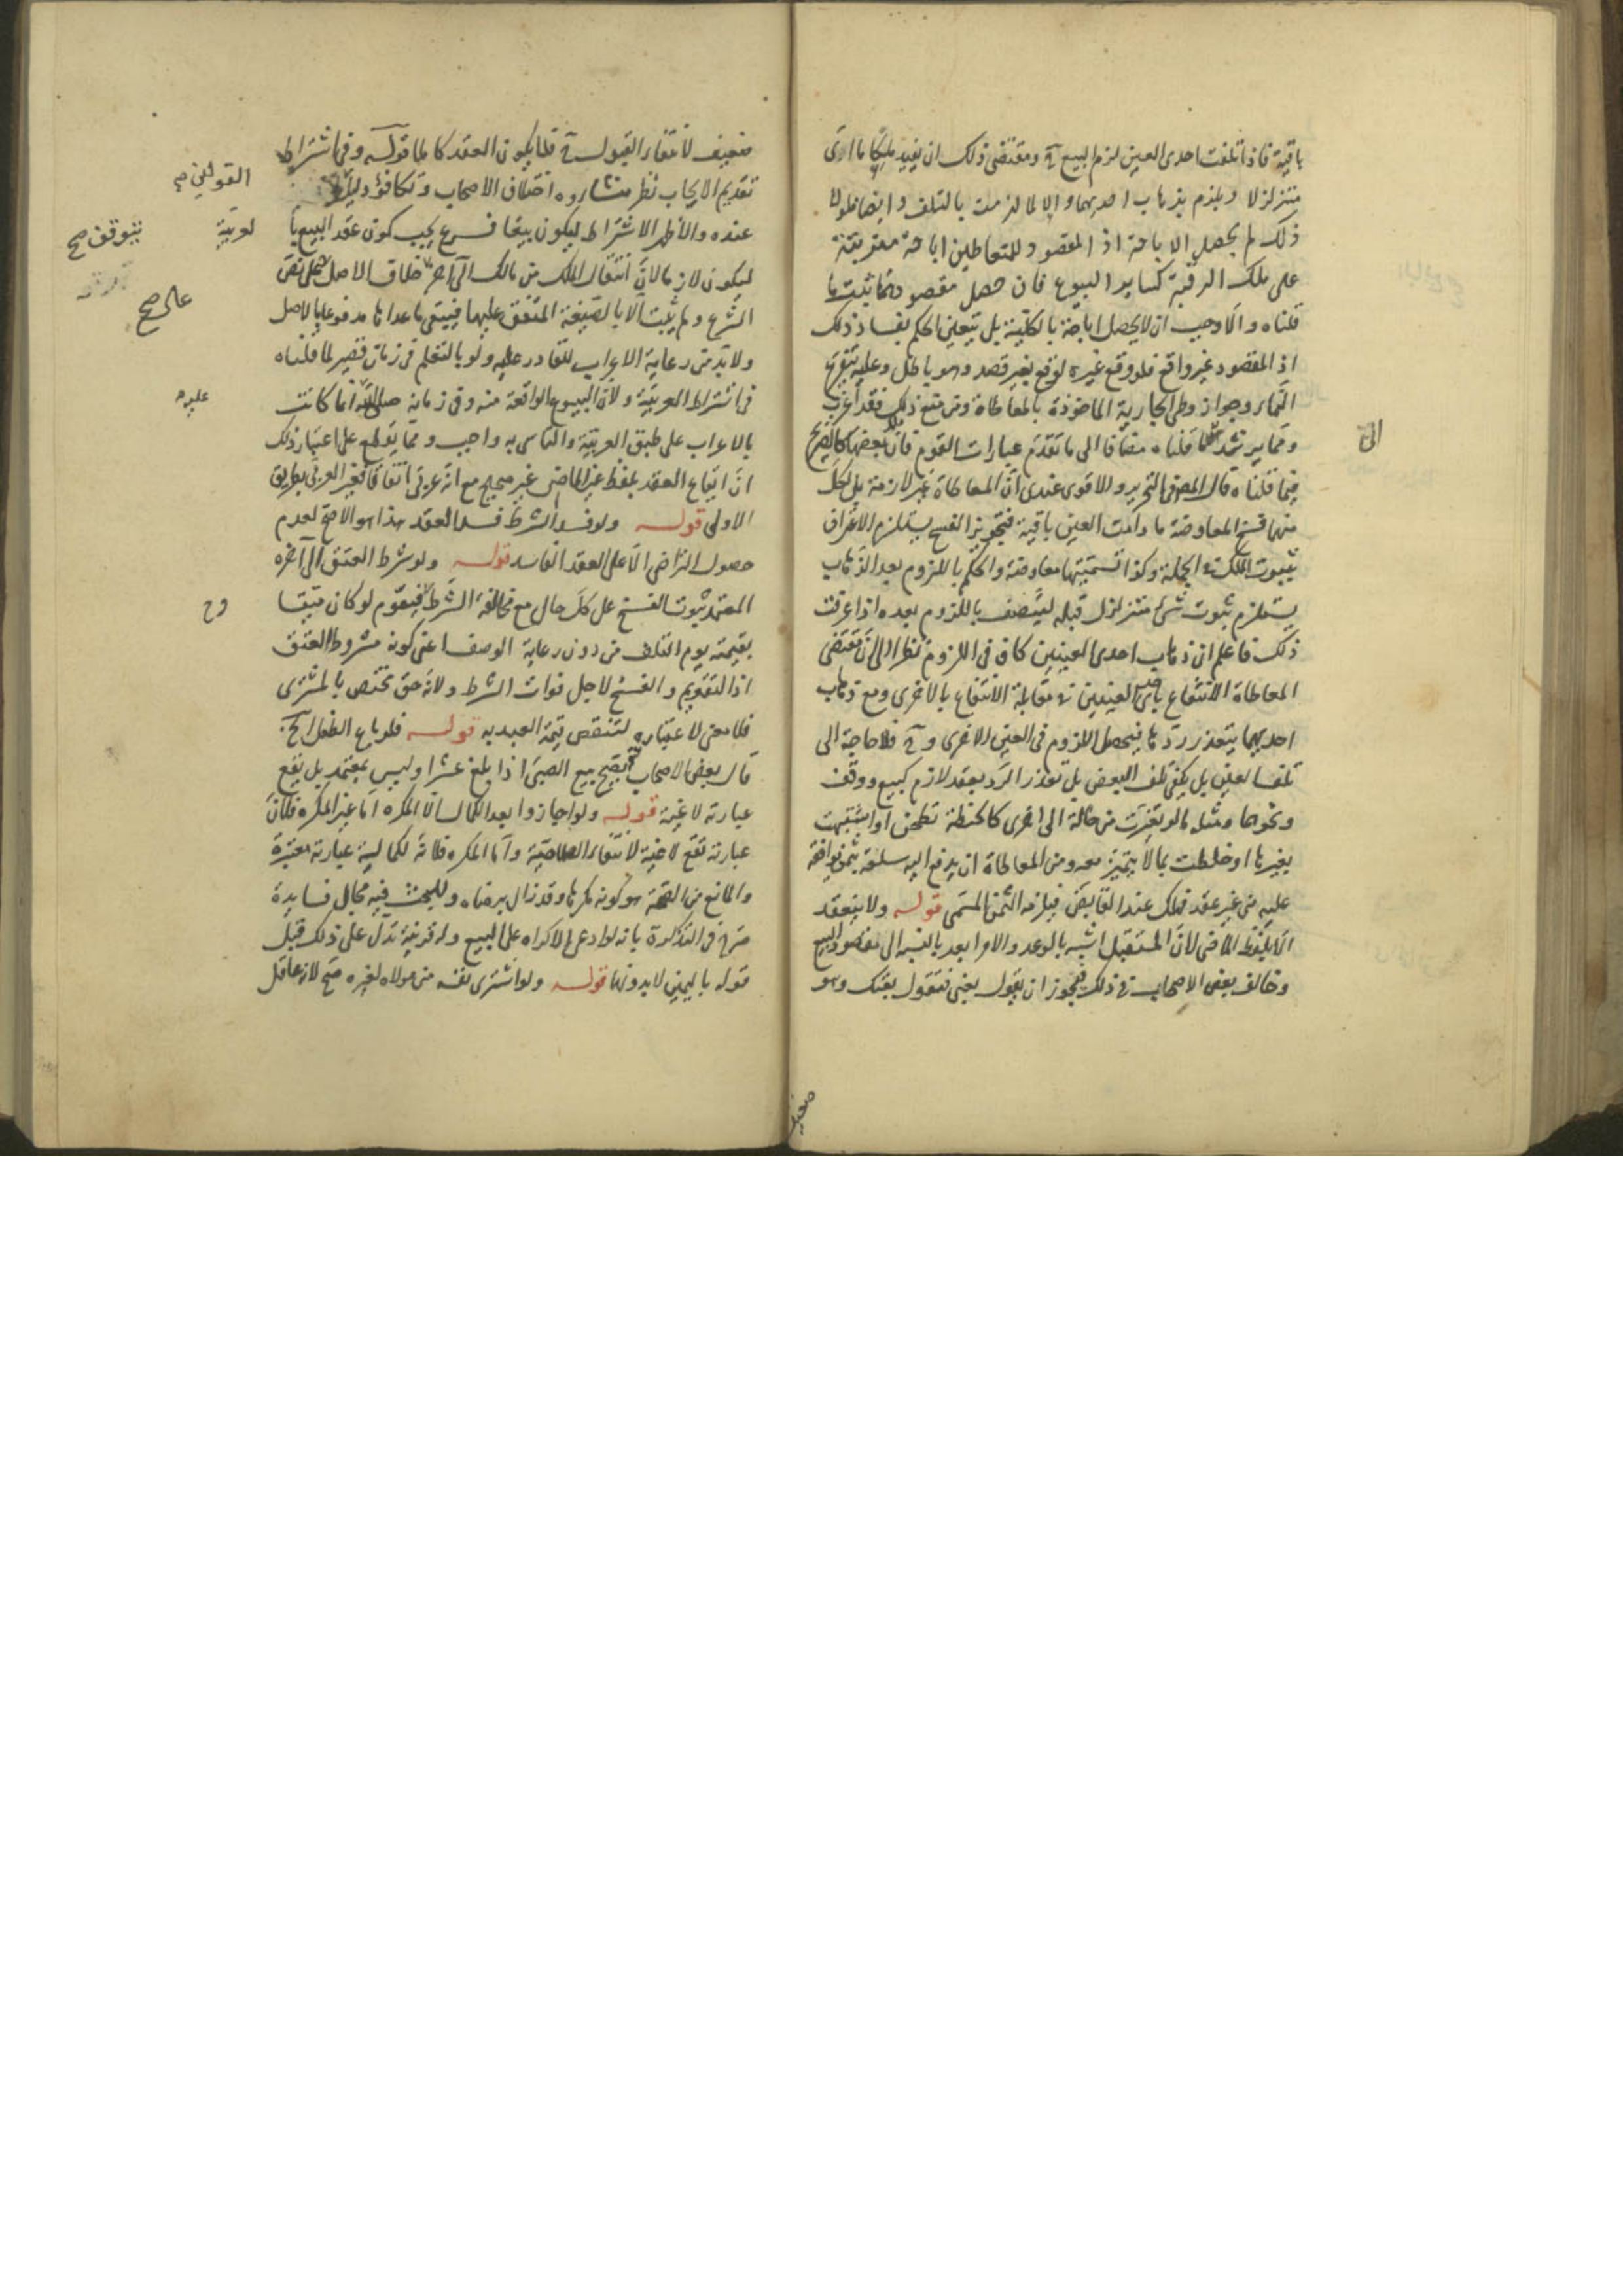 باقية فاذا تلفت احدى العين لزم البيع ح ومقتضى ذلك ان يفيد ملكا ما اذى
متزلزلا ويلزم بذهاب احديهما والا لما لزمت بالتلف وايضا فلولا
ذلك لم يحصل الاباحة اذ المقصود للمتعاطين اباحة مترتبة
على ملك الرقبة كساير البيوع فان حصل مقصودهما ثبت ما
قلناه والا وجب ان لا يحصل اباحة بالكلية بل يتعين الحكم بفساد ذلك
اذ المقصود غير واقع فلو وقع غيره لوقع بغير قصد وهو باطل وعليه يتفرع
النماء وجواز وطى الجارية الماخوذة بالمعاطاة ومن منع ذلك فقد اغرب
ومما يرشد الى ما قلناه مضافا الى ما تقدم عبارات القوم فان بعضها كالصريح
فيما قلناه قال المص فى التحرير والاقوى عندى ان المعاطاة غير لازمة بل لكل
منهما فسخ المعاوضة ما دامت العين باقية فتجويز الفسخ يستلزم الاعتراف
بثبوت الملك فى الجملة وكذا تسميتها معاوضة والحكم باللزوم بعد الذهاب
يستلزم ثبوت شىء متزلزل قبله ليتصف باللزوم بعده اذا عرفت
ذلك فاعلم ان ذهاب احدى العينين كاف فى اللزوم نظرا الى ان مقتضى
المعاطاة الانتفاع باحدى العينين فى مقابلة الانتفاع بالاخرى ومع ذهاب
احديهما يتعذر ردها فيحصل اللزوم فى العين الاخرى وح فلا حاجة الى
تلف العين بل يكفى تلف البعض بل تعذر الرد بعقد لازم كبيع ووقف
ونحوهما ومثله ما لو تغيرت من حالة الى اخرى كالحنطة تطحن او اشتبهت
بغيرها او خلطت بما لا يتميز معه ومن المعاطاة ان يدفع اليه سلعة بثمن يوافقه
عليه من غير عقد فملك عند التقابض فيلزمه الثمن المسمى قوله ولا ينعقد
الا بلفظ الماضى لان المستقبل اشبه بالوعد والامر ابعد بالنسبة الى مقصود البيع
وخالف بعض الاصحاب فى ذلك فيجوز ان يقول بعنى فتقول بعتك وهو
الى
ضعيف
ضعيف لانتفاء القبول ح فلا يكون العقد كاملا قوله وفى اشتراط
تقديم الايجاب نظر منشاوه اختلاف الاصحاب وتكافؤ دليل
عنده والاظهر الاشتراط ليكون بيعا فرع يجب كون عقد البيع با
ليكون لازما لان انتقال الملك من مالك الى آخر خلاف الاصل على نص
الشرع ولم يثبت الا بالصيغة المتفق عليها فيبقى ما عداها مدفوعا بالاصل
ولا بد من رعاية الاعراب للقادر عليه ولو بالتعلم فى زمان قصير لما قلناه
فى اشتراط العربية ولان البيوع الواقعة منه وفى زمانه صلى الله انما كانت
بالاعراب على طبق العربية والتاسى به واجب ومما يقطع على اعتبار ذلك
ان ايقاع العقد بلفظ غير الماضى غير صحيح مع انه عربى اتفاقا فغير العربى بطريق
الاولى قوله ولو فسد الشرط فسد العقد هذا هو الاصح لعدم
حصول التراضى الا على العقد الفاسد قوله ولو شرط العتق الى آخره
المعتمد ثبوت الفسخ على كل حال مع مخالفة الشرط فيقوم لو كان ميتا
بقيمته يوم التلف من دون رعاية الوصف اعنى كونه مشروط العتق
اذ التقويم والفسخ لاجل فوات الشرط ولانه حق مختص بالمشترى
فلا معنى لاعتباره لتنقص قيمة العبد به قوله فلو باع الطفل الخ
قال بعض الاصحاب يصح بيع الصبى اذا بلغ عشرا وليس بمعتمد بل يقع
عبارته لاغية قوله ولو اجازوا بعد الكمال الا المكره اما غير المكره فلان
عبارته تقع لاغية لانتفاء الصلاحية واما المكره فلانه لكماليته عبارته معتبرة
والمانع من الصحة هو كونه مكرها وقد زال برضاه وللبحث فيه مجال فسايدة
صرح فى التذكرة بانه لو ادعى الاكراه على البيع وله قرينة تدل على ذلك قبل
قوله باليمين لا بدونها قوله ولو اشترى نفسه من مولاه لغيره صح لانه عاقل
القولين
يتوقف صح
لعربية
عالى صح
عليه
وح